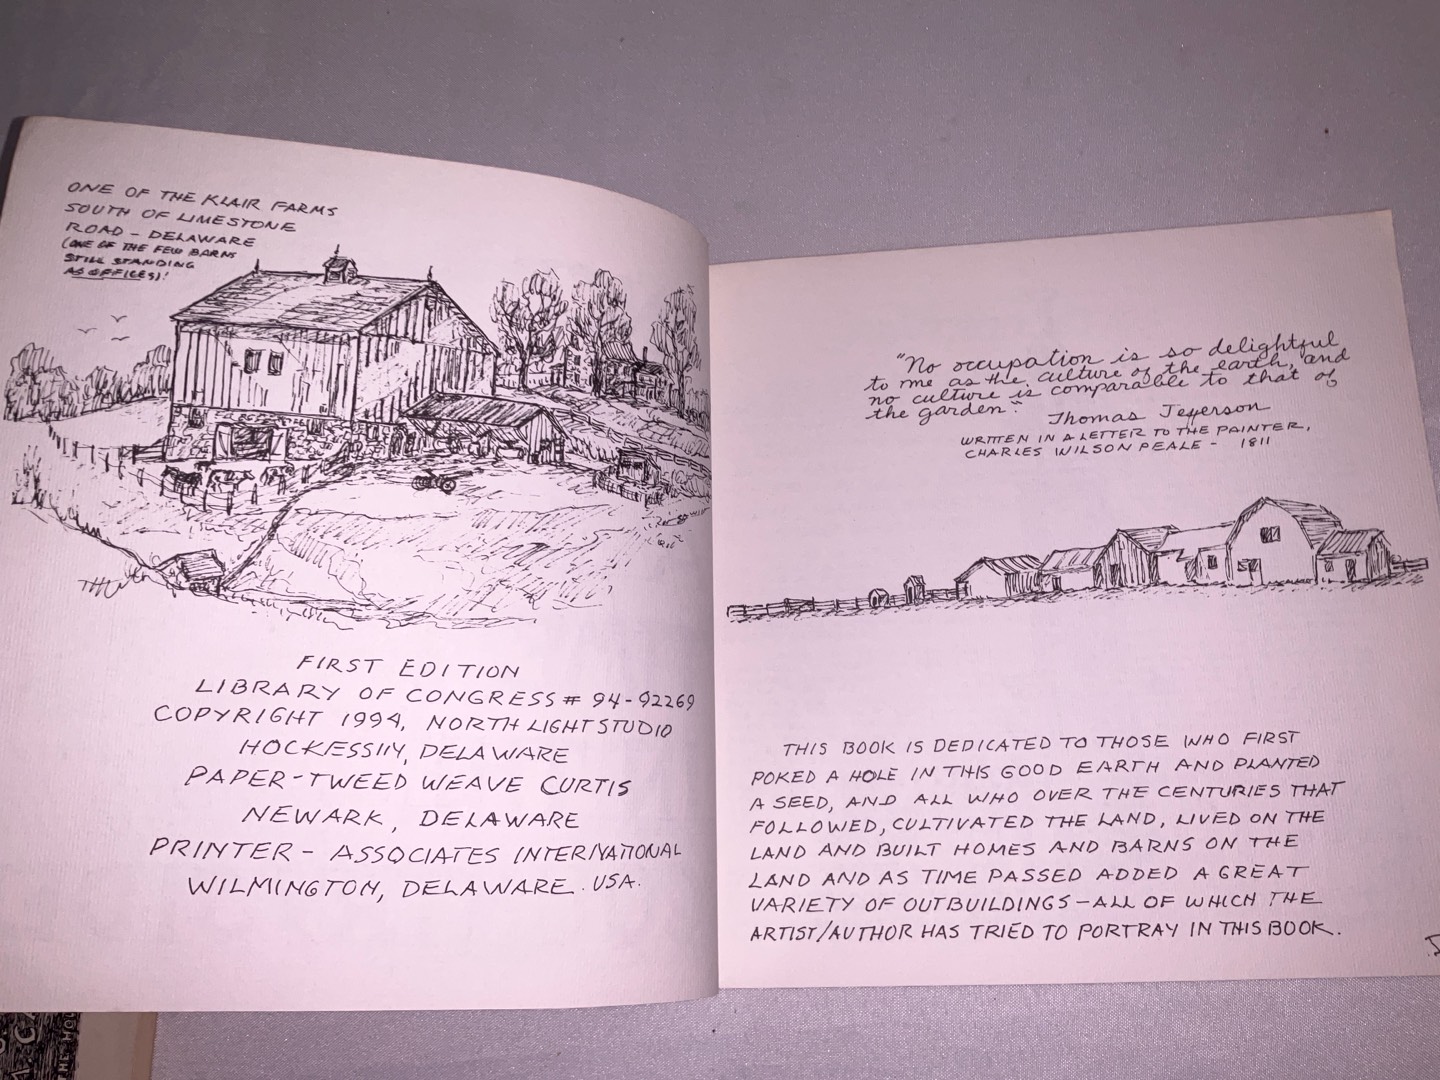 ONE OF THE KLAIR FARMS
SOUTH OF LIMESTONE
ROAD - DELAWARE
(ONE OF THE FEW BARNS
STILL STANDING
AS OFFICES)!
FIRST EDITION
LIBRARY OF CONGRESS # 94-92269
COPYRIGHT 1994, NORTH LIGHT STUDIO
HOCKESSIN, DELAWARE
PAPER-TWEED WEAVE CURTIS
NEWARK, DELAWARE
PRINTER - ASSOCIATES INTERNATIONAL
WILMINGTON, DELAWARE. USA.
"No occupation is so delightful
to me as the culture of the earth, and
no culture is comparable to that of
the garden."
Thomas Jefferson
WRITTEN IN A LETTER TO THE PAINTER,
CHARLES WILSON PEALE - 1811
THIS BOOK IS DEDICATED TO THOSE WHO FIRST
POKED A HOLE IN THIS GOOD EARTH AND PLANTED
A SEED, AND ALL WHO OVER THE CENTURIES THAT
FOLLOWED, CULTIVATED THE LAND, LIVED ON THE
LAND AND BUILT HOMES AND BARNS ON THE
LAND AND AS TIME PASSED ADDED A GREAT
VARIETY OF OUTBUILDINGS - ALL OF WHICH THE
ARTIST/AUTHOR HAS TRIED TO PORTRAY IN THIS BOOK.